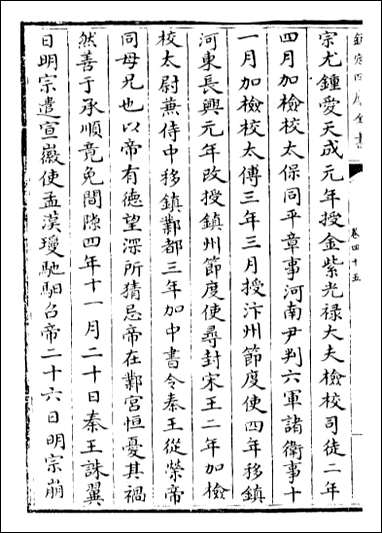 欽定四庫全書
卷四十五
宗尤鍾愛天成元年授金紫光禄大夫檢校司徒二年
四月加檢校太保同平章事河南尹判六軍諸衛事十
一月加檢校太傅三年三月授汴州節度使四年移鎮
河東長興元年改授鎮州節度使尋封宋王二年加檢
校太尉蕪侍中移鎮鄴都三年加中書令秦王從榮帝
同母兄也以帝有德望深所猜忌帝在鄴宫恒憂其禍
然善于承順竟免間隙四年十一月二十日秦王誅翼
日明宗遣宣徽使孟漢瓊馳馹召帝二十六日明宗崩